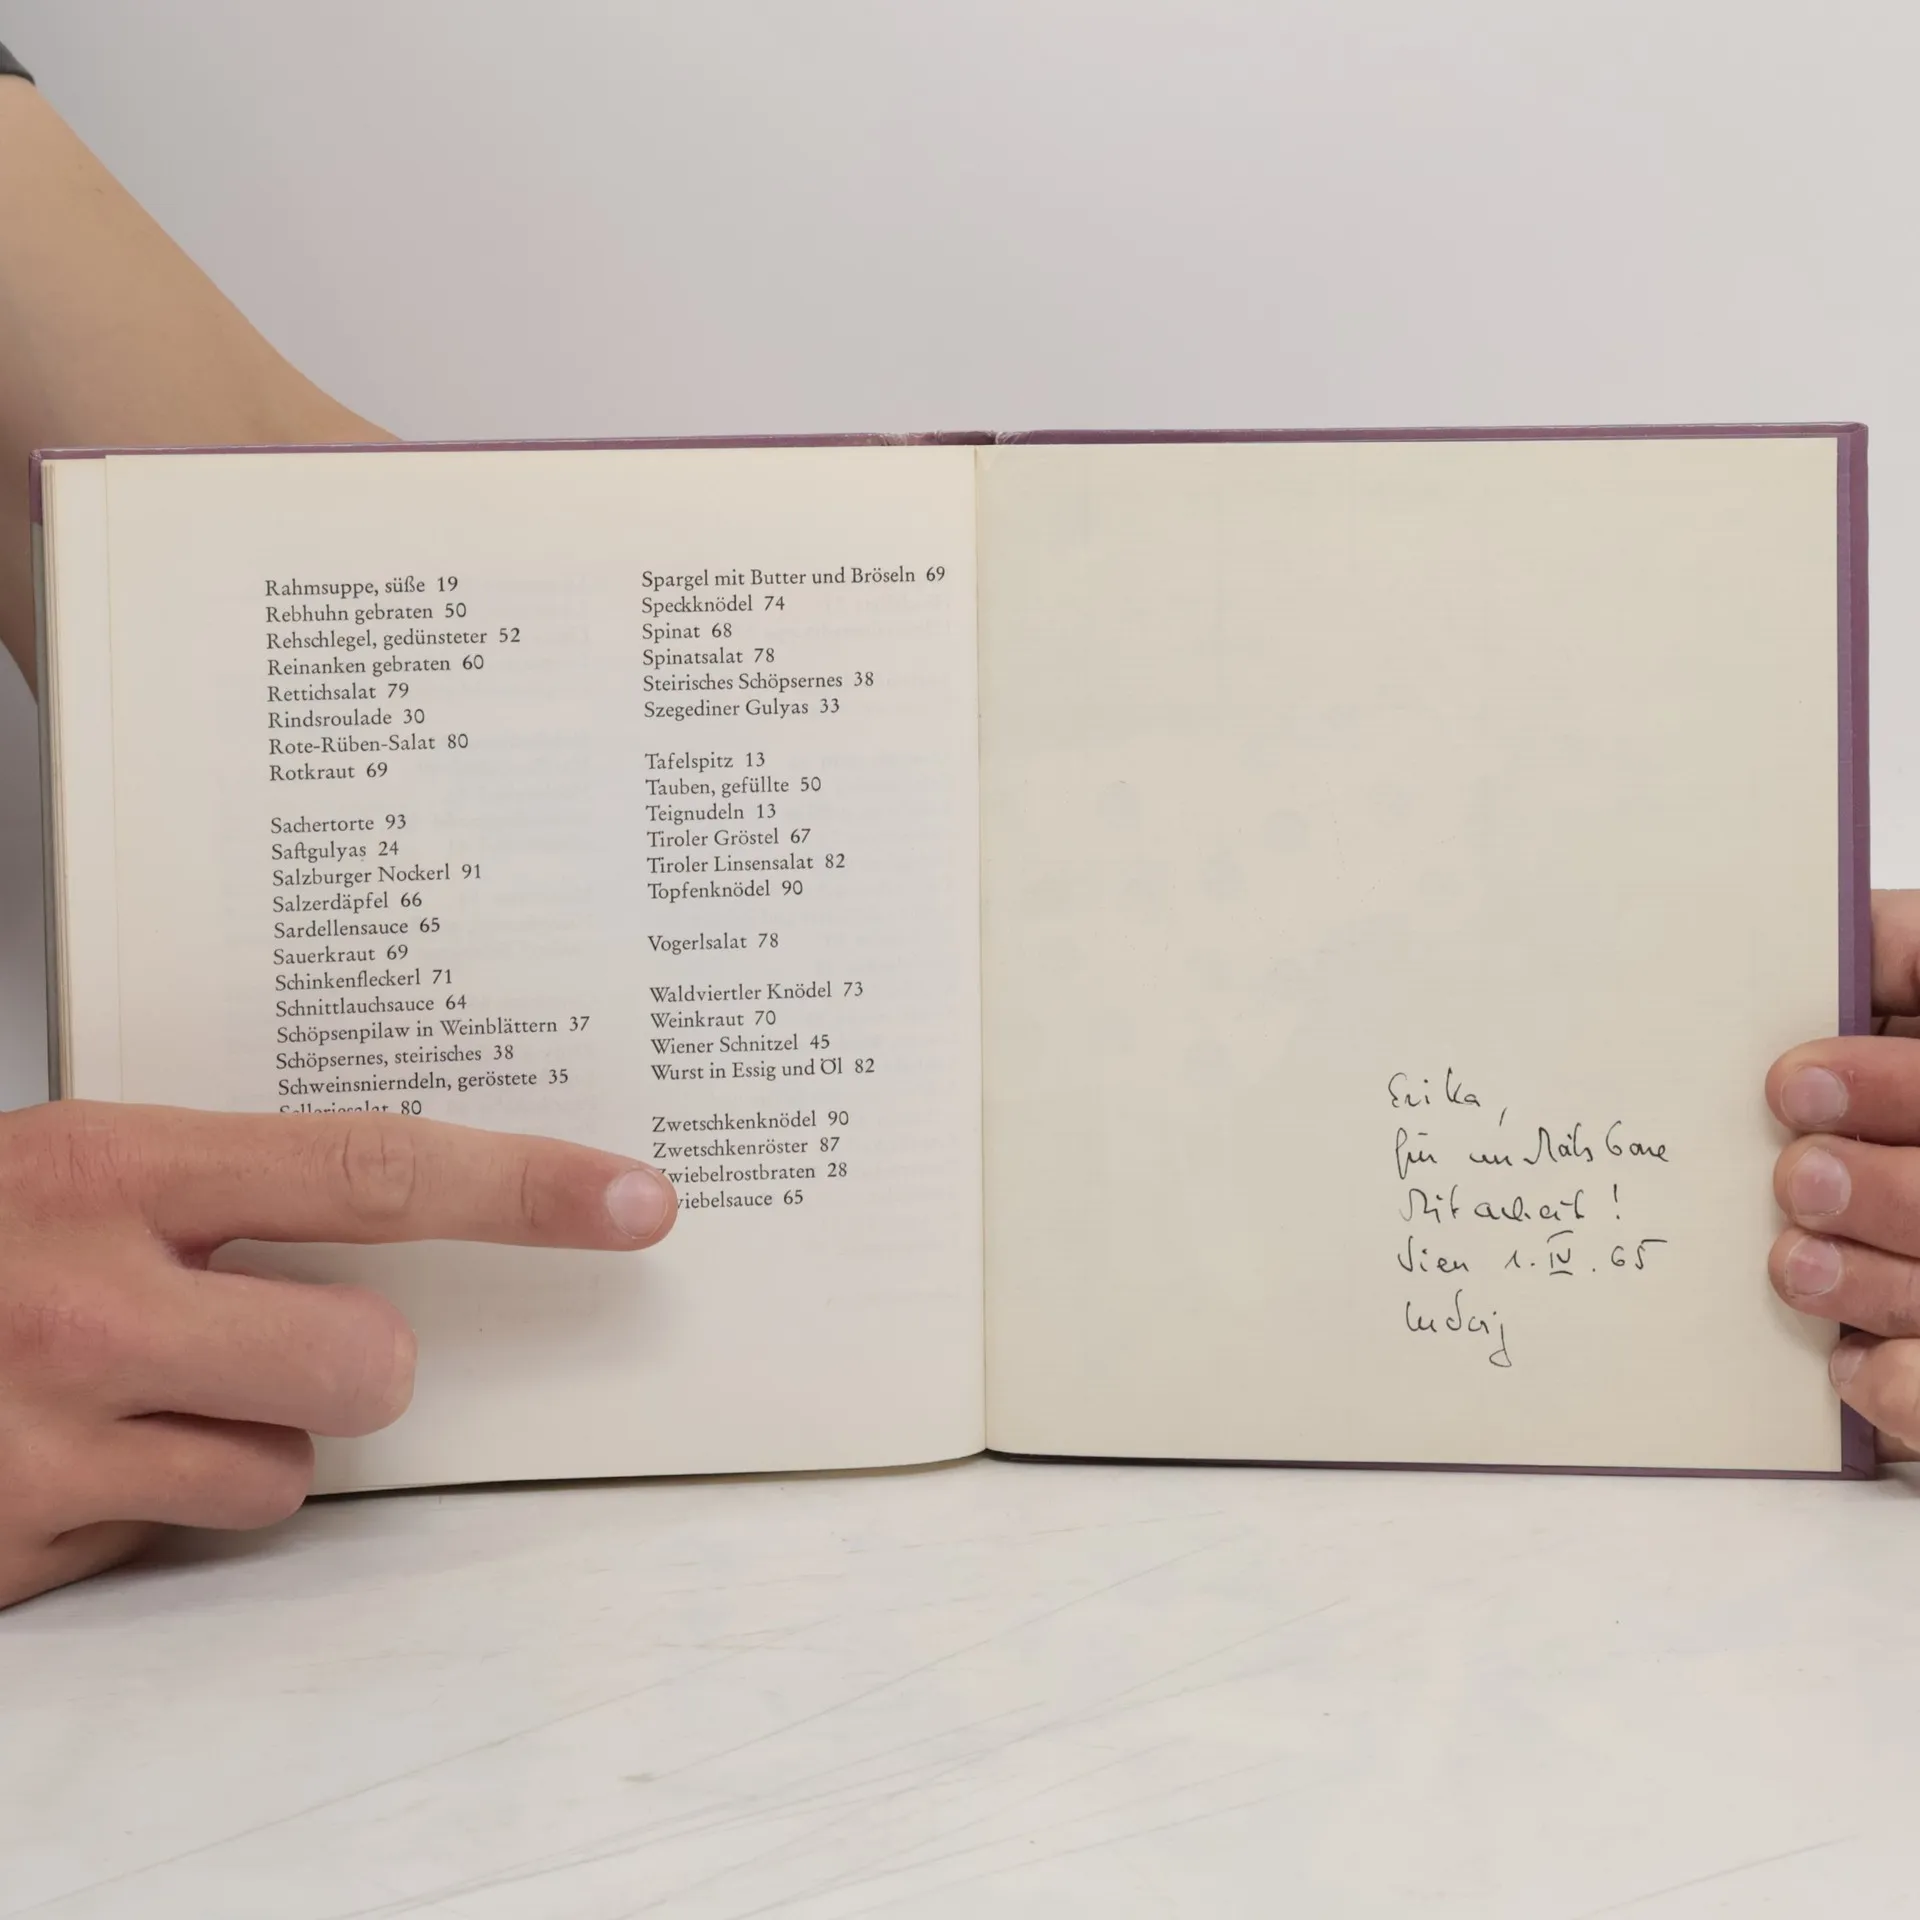 Rahmsuppe, süße 19
Rebhuhn gebraten 50
Rehschlegel, gedünsteter 52
Reinanken gebraten 60
Rettichsalat 79
Rindsroulade 30
Rote-Rüben-Salat 80
Rotkraut 69
Sachertorte 93
Saftgulyas 24
Salzburger Nockerl 91
Salzerdäpfel 66
Sardellensauce 65
Sauerkraut 69
Schinkenfleckerl 71
Schnittlauchsauce 64
Schöpsenpilaw in Weinblättern 37
Schöpsernes, steirisches 38
Schweinsnierndeln, geröstete 35
Selleriesalat 80
Spargel mit Butter und Bröseln 69
Speckknödel 74
Spinat 68
Spinatsalat 78
Steirisches Schöpsernes 38
Szegediner Gulyas 33
Tafelspitz 13
Tauben, gefüllte 50
Teignudeln 13
Tiroler Gröstel 67
Tiroler Linsensalat 82
Topfenknödel 90
Vogerlsalat 78
Waldviertler Knödel 73
Weinkraut 70
Wiener Schnitzel 45
Wurst in Essig und Öl 82
Zwetschkenknödel 90
Zwetschkenröster 87
Zwiebelrostbraten 28
wiebelsauce 65
Erika,
für
Mitarbeit!
Wien 1. IV. 65
Ludwig